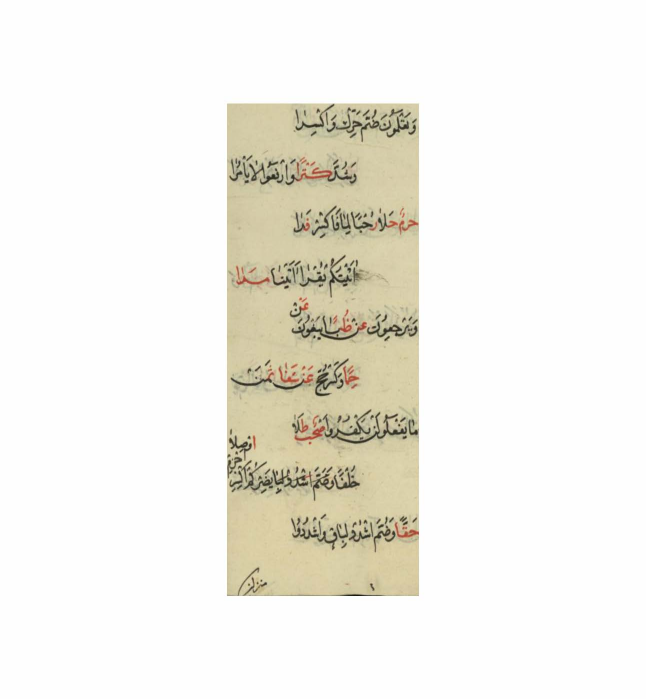 وَيَعْلَمُونَ ضُمَّ حَرِّكْ وَاكْسِرَا
وَشُدَّ كَنْزًا وَارْفَعُوا لَا يَأْمُرَا
حِرْمٌ حَلَا رُحْبًا لِمَا فَاكْسِرْ فِدَا
آتَيْتُكُمْ يُقْرَأُ آتَيْنَا مَدَا
وَيَرْجِعُونَ عَنْ ظُبًا يَبْغُونَ عَنْ
حِمًا وَكَسْرُ حَجُّ عَنْ شَفَا ثَمَنْ
مَا يَفْعَلُوا لَنْ يُكْفَرُوا صَحْبٌ طَلَا
خُلْفًا وَضُمَّ اشْدُدْ يَضِرْكُمُ اكْسِرِ اجْزِمْ اوْصِلَا
حَقًّا وَضُمَّ اشْدُدْ لِبَاقٍ وَاشْدُدُوا
منزلين